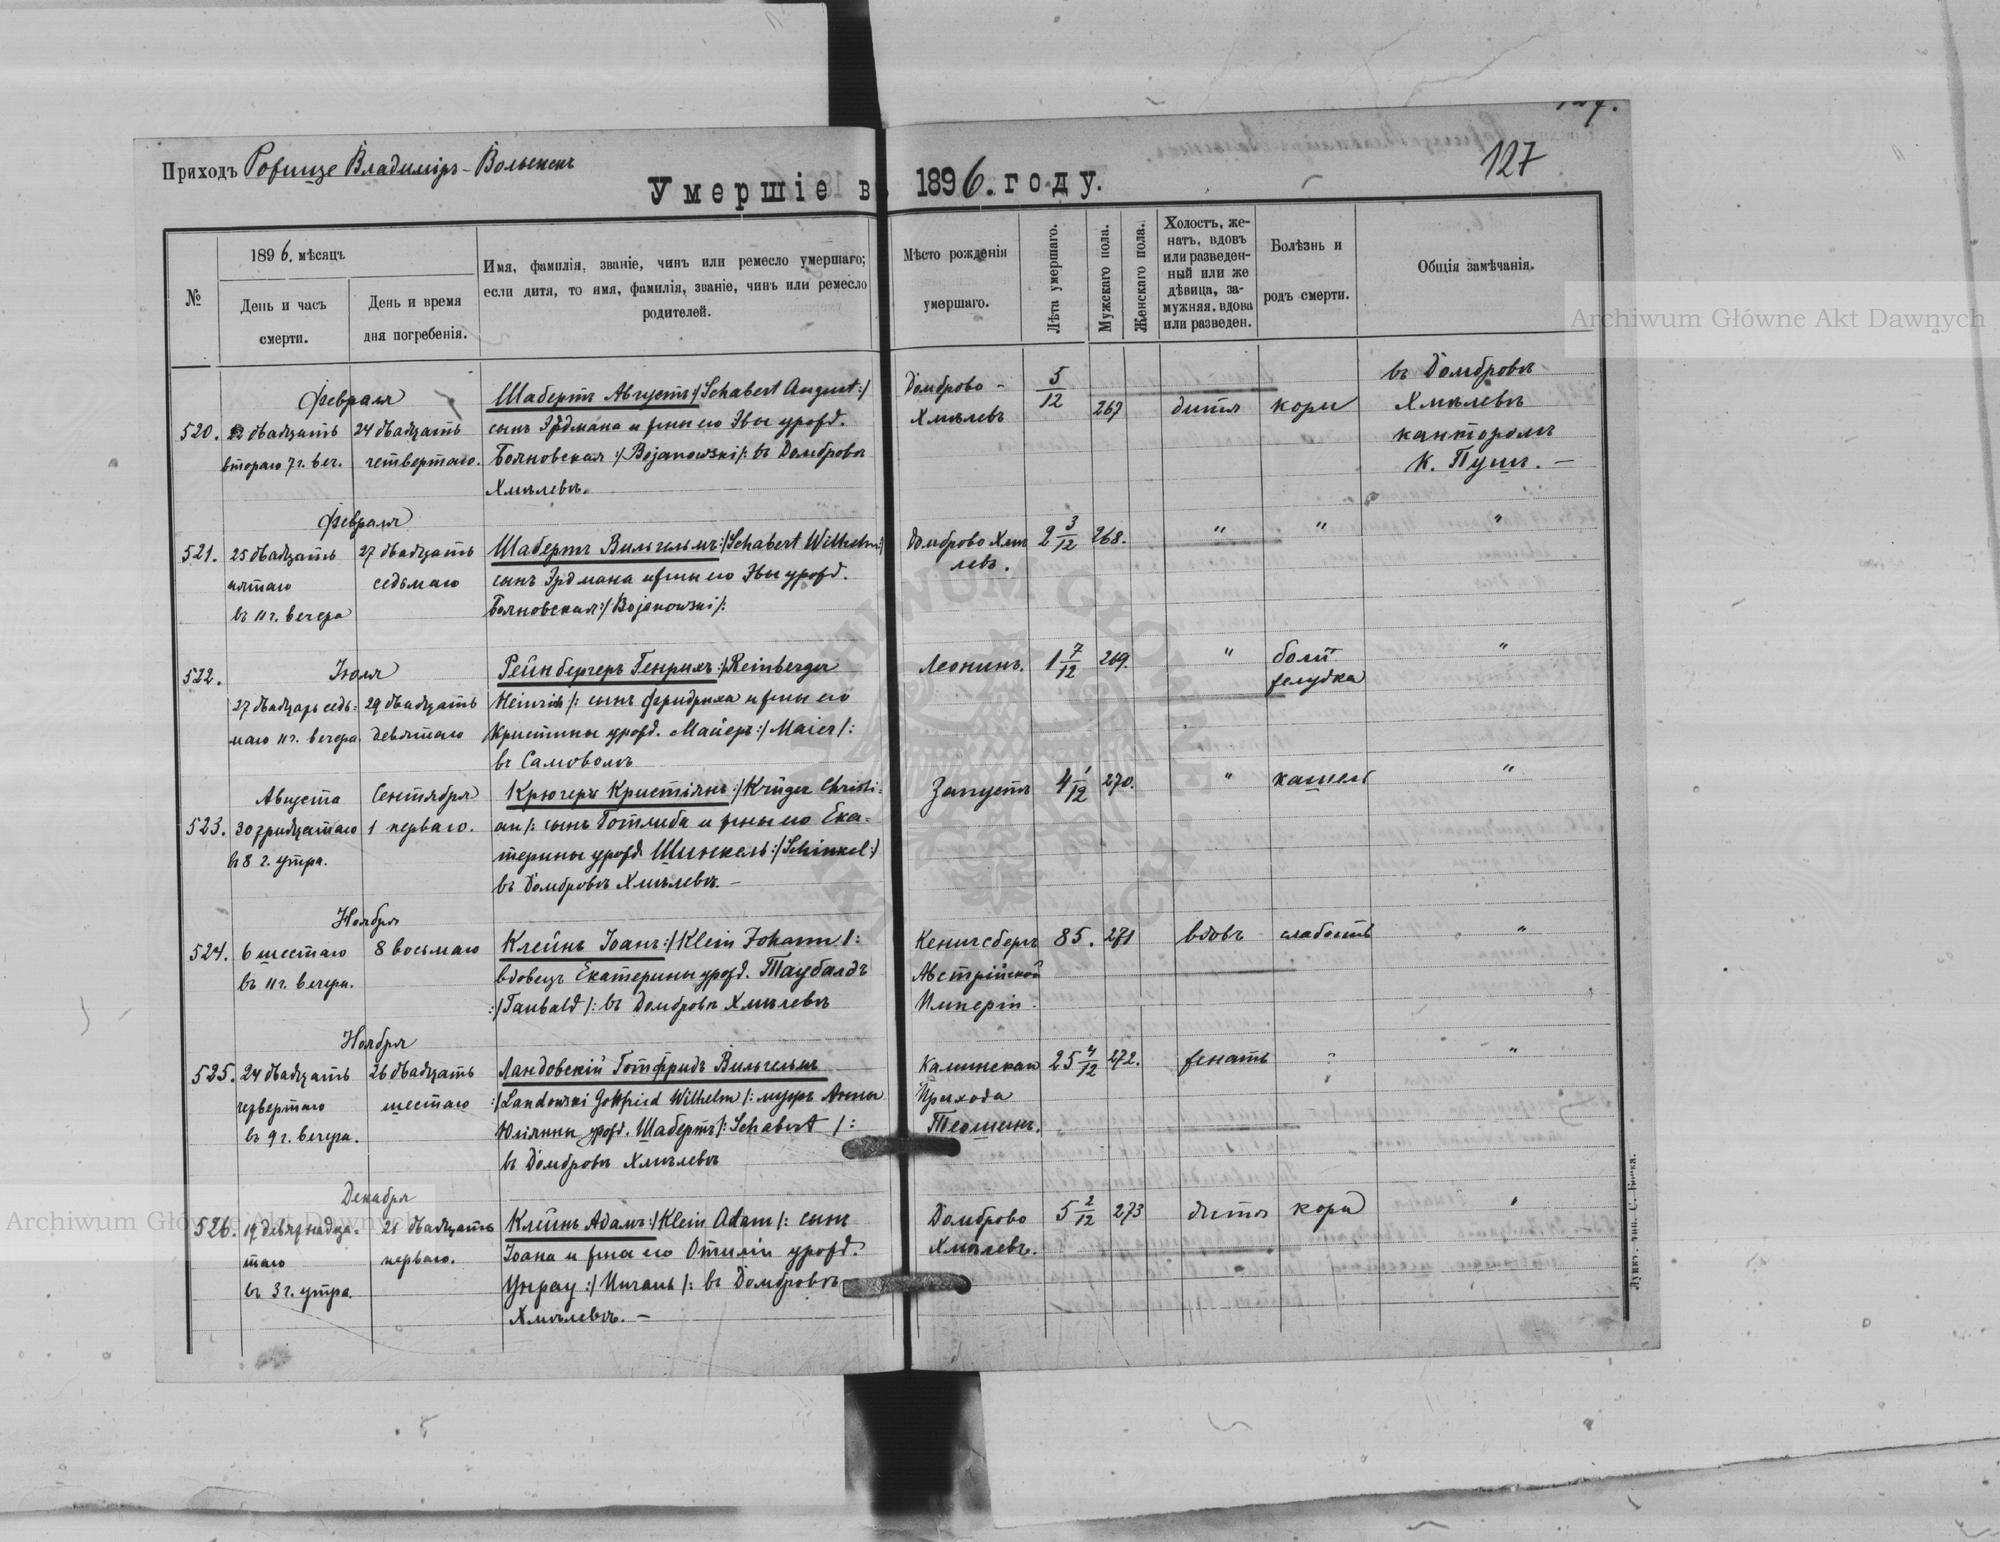 127
Приходъ Рожище Владиміръ-Волынскъ
Умершіе въ 1896. году.
№
1896. мѣсяцъ
День и часъ смерти.
День и время дня погребенія.
Имя, фамилія, званіе, чинъ или ремесло умершаго;
если дитя, то имя, фамилія, званіе, чинъ или ремесло
родителей.
Мѣсто рожденія
умершаго.
Лѣта умершаго.
Мужскаго пола.
Женскаго пола.
Холостъ, же-
натъ, вдовъ
или разведен-
ный или же
дѣвица, за-
мужняя, вдова
или разведен.
Болѣзнь и
родъ смерти.
Общія замѣчанія.
520.
Февраля
22 двадцать
втораго 7 г. веч.
24 двадцать
четвертаго.
Шабертъ Августъ :/Schabert August:/
сынъ Эрдмана и жены его Эвы урожд.
Бояновская :/Bojanowski/: въ Домбровѣ
Хмѣлевѣ.
Домброво-
Хмѣлевъ
5/12
267
дитя
кори
въ Домбровѣ
Хмѣлевѣ
канторомъ
К. Пуш. —
521.
Февраля
25 двадцать
пятаго
въ 11 г. вечера
27 двадцать
седьмаго
Шабертъ Вильгельмъ :/Schabert Wilhelm:/
сынъ Эрдмана и жены его Эвы урожд.
Бояновская :/Bojanowski/:
Домброво Хмѣ
левъ.
2 3/12
268.
"
"
"
522.
Іюля
27 двадцать седь-
маго 11 г. вечера.
29 двадцать
девятаго
Рейнбергеръ Генрихъ :/Reinberger
Heinrich/: сынъ Фридриха и жены его
Кристины урожд. Майеръ :/Maier/:
въ Самоволѣ
Леонинъ.
1 7/12
269.
"
боли
желудка
"
523.
Августа
30 тридцатаго
въ 8 г. утра.
Сентября
1 перваго.
Крюгеръ Кристіянъ :/Krüger Christi-
an/: сынъ Готлиба и жены его Ека-
терины урожд. Шинкель :/Schinkel:/
въ Домбровѣ Хмѣлевѣ. —
Запустъ
4 1/12
270.
"
кашель
"
524.
Ноября
6 шестаго
въ 11 г. вечера.
8 восьмаго
Клейнъ Іоанъ :/Klein Johann/:
вдовецъ Екатерины урожд. Таубалдъ
:/Taubald/: въ Домбровѣ Хмѣлевѣ
Кенигсбергъ
Австрійской
Имперіи.
85.
271
вдовъ
слабость
"
525.
Ноября
24 двадцать
четвертаго
въ 9 г. вечера.
26 двадцать
шестаго
Ландовскій Готфридъ Вильгельмъ
:/Landowski Gottfried Wilhelm/: мужъ Анны
Юліяны урожд. Шабертъ /:Schabert/:
въ Домбровѣ Хмѣлевѣ
Прихода
25 4/12
272.
женатъ
"
"
526.
Декабря
19 девятнадца-
таго
въ 3 г. утра.
21 двадцать
перваго.
Клейнъ Адамъ :/Klein Adam/: сынъ
Іоана и жены его Отиліи урожд.
Унрау въ Домбровѣ
Хмѣлевѣ. —
Домброво
Хмѣлевъ.
5 2/12
273
дитя
кори
"
Archiwum Główne Akt Dawnych
Archiwum Główne Akt Dawnych
ARCHIWUM GŁÓWNE AKT DAWNYCH